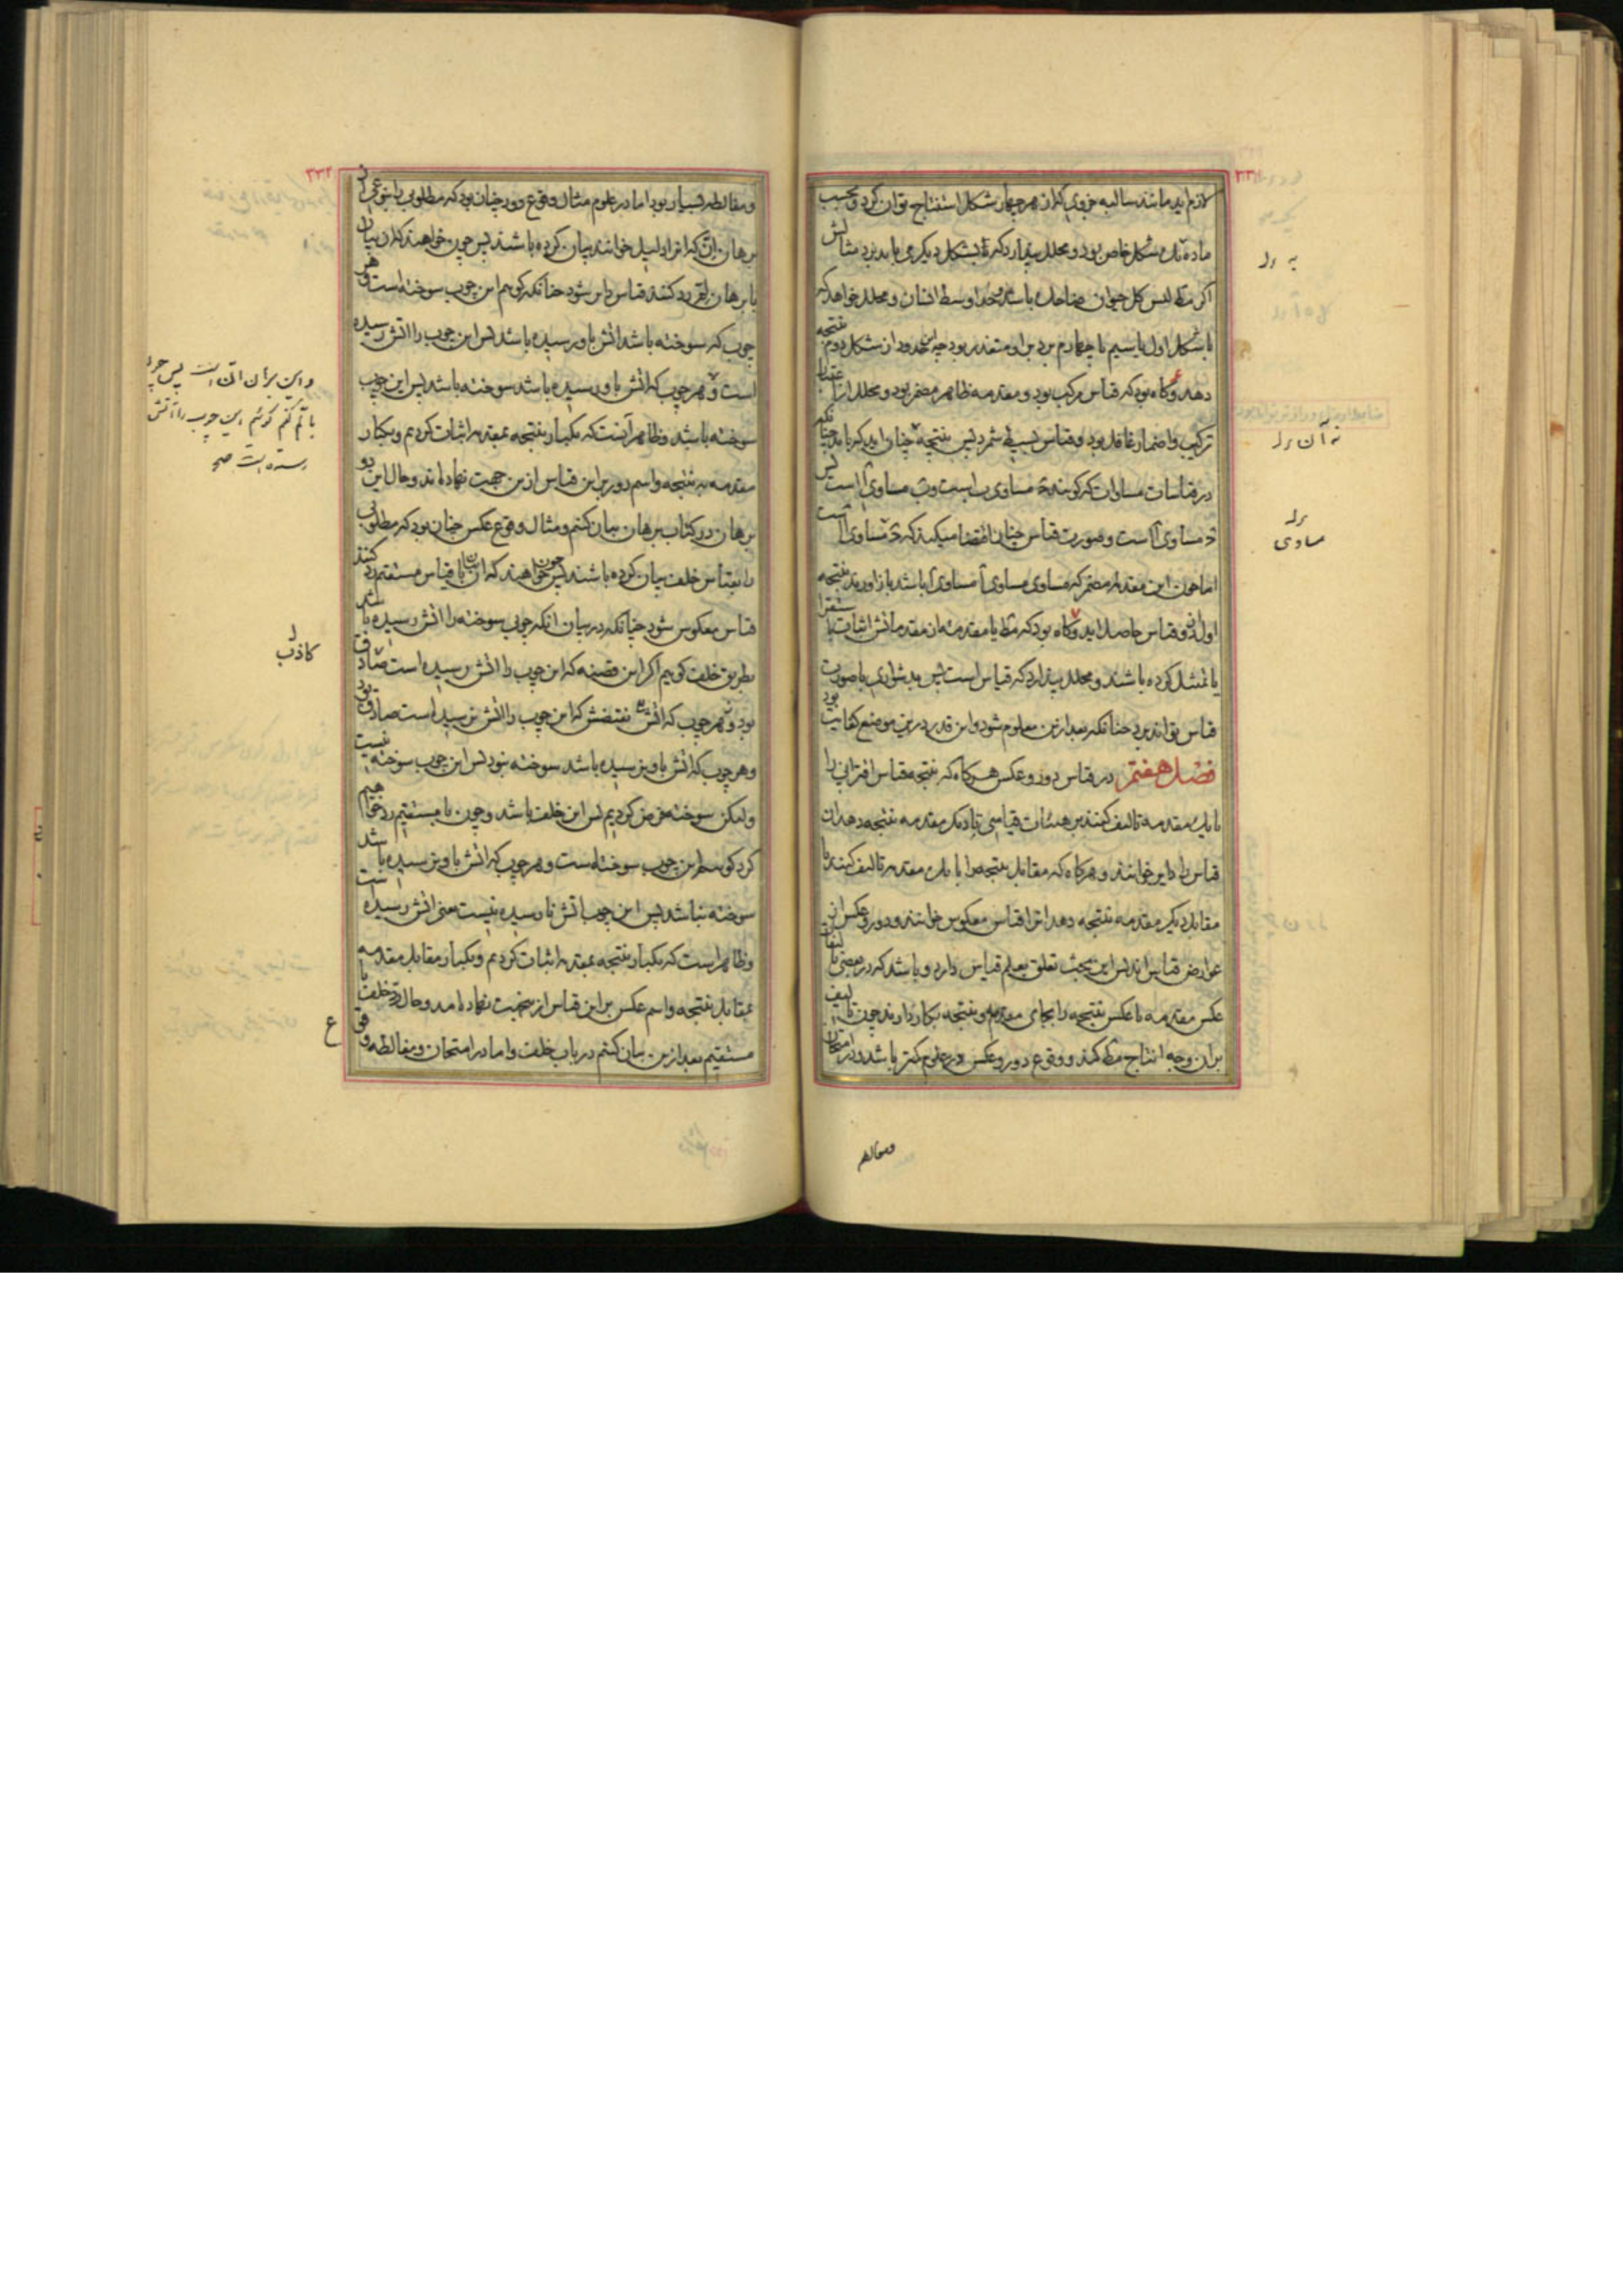 ۲۳۱
لازم آید مانند سالبه جزوی که از هر چهار شکل استنتاج توان کرد و بحسب
ماده یک شکل خاص بود و محلل پندارد که با شکل دیگر می باید برد مثالش
اگر مط لیس کل حیوان ضاحک باشد و حد اوسط انسان و محلل خواهد که
با شکل اول یا سیم یا چهارم برد برو متعذر بود چه این حدود از شکل دوم نتیجه
دهد و گاه بود که قیاس مرکب بود و مقدمه ظاهر مضمر بود و محلل از اعتبار
ترکیب و اضمار غافل بود و قیاس بسیط شمرد پس نتیجه نه چنان آید که باید چنانکه
در قیاسات مساوات که گویند ج مساوی ب است و ب مساوی آ است پس
ج مساوی آ است و صورت قیاس چنان اقتضا میکند که ج مساوی آ است
اما چون این مقدمه مضمر که مساوی مساوی آ مساوی آ باشد باز آورند نتیجه
اول از دو قیاس حاصل آید و گاه بود که مط یا مقدمه از مقدماتش اثبات باستقرا
یا تمثیل کرده باشند و محلل پندارد که قیاس است پس بدشواری با صورت
قیاس تواند برد چنانکه بعد ازین معلوم شود و این قدر درین موضع کفایت بود
فصل هفتم در قیاس دور و عکس هر گاه که نتیجه قیاس اقترانی را
با یک مقدمه تالیف کنند بر هیئات قیاسی تا دیگر مقدمه نتیجه دهد آن
قیاس را دایر خوانند و هر گاه که مقابل نتیجه را با یک مقدمه تالیف کنند تا
مقابل دیگر مقدمه نتیجه دهد آنرا قیاس معکوس خوانند و دور و عکس از
عوارض قیاس اند پس این بحث تعلق بعلم قیاس دارد و باشد که در بعضی تالیفات
عکس مقدمه یا عکس نتیجه را بجای مقدمه و نتیجه بکار دارند چون تالیف
بران وجه انتاج مط کند و وقوع دور و عکس در علوم کمتر باشد و در امتحان
ومغالطه
به رد
نه آن رد
رد
مساوی
۲۳۲
و مغالطه بسیار بود اما در علوم مثال وقوع دور چنان بود که مطلوبی را بنوعی از
برهان ان که آنرا دلیل خوانند بیان کرده باشند پس چون خواهند که آن بیان
با برهان لم رد کنند قیاس دایر شود چنانکه گوئیم این چوب سوخته است و هر
چوب که سوخته باشد آتش باو رسیده باشد پس این چوب را آتش رسیده
است و هر چوب که آتش باو رسیده باشد سوخته باشد پس این چوب
سوخته باشد و ظاهر آنست که یکبار نتیجه بمقدمه اثبات کردیم و یکبار
مقدمه به نتیجه و اسم دور برین قیاس ازین جهت نهاده اند و حال این دو
برهان در کتاب برهان بیان کنیم و مثال وقوع عکس چنان بود که مطلوبی
را بقیاس خلف بیان کرده باشند پس چون خواهند که آن را با قیاس مستقیم رد کنند
قیاس معکوس شود چنانکه در بیان آنکه چوبی سوخته را آتش رسیده باشد
بطریق خلف گوییم اگر این قضیه که این چوب را آتش رسیده است صادق
بود نقیضش که این چوب را آتش نرسیده است صادق بود
و هر چوب که آتش باو نرسیده باشد سوخته نبود پس این چوب سوخته نیست
ولیکن سوخته فرض کردیم پس این خلف باشد و چون با مستقیم رد خواهیم
کرد گوییم این چوب سوخته است و هر چوب که آتش باو نرسیده باشد
سوخته نباشد پس این چوب آتش نارسیده نیست یعنی آتش رسیده است
و ظاهر است که یکبار نتیجه بمقدمه اثبات کردیم و یکبار مقابل مقدمه
بمقابل نتیجه و اسم عکس برین قیاس ازینجهت نهاده اند و حال رد خلف با
مستقیم بعد ازین بیان کنیم در باب خلف و اما در امتحان و مغالطه وقوع
و این برهان انی است پس چون
با لم کنم گوئیم این چوب را آتش
رسیده است صح
کاذب